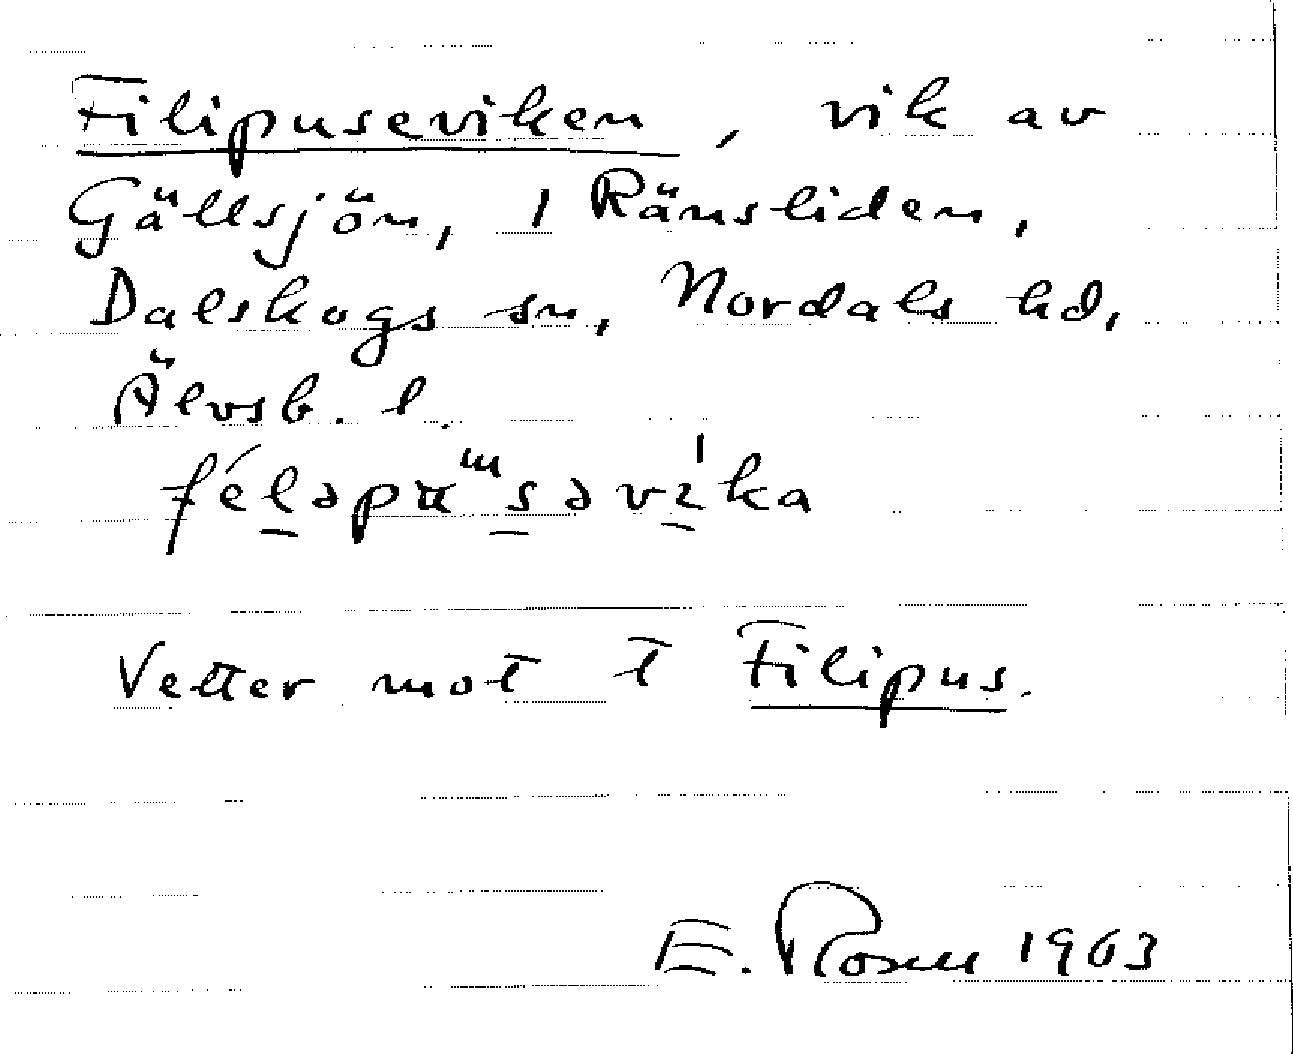 Filipuseviken, vik av
Gällsjön, 1 Ränsliden,
Dalskogs sn, Nordals hd,
Älvsb. l.
Vetter mot T Filipus.
E. Rosell 1963